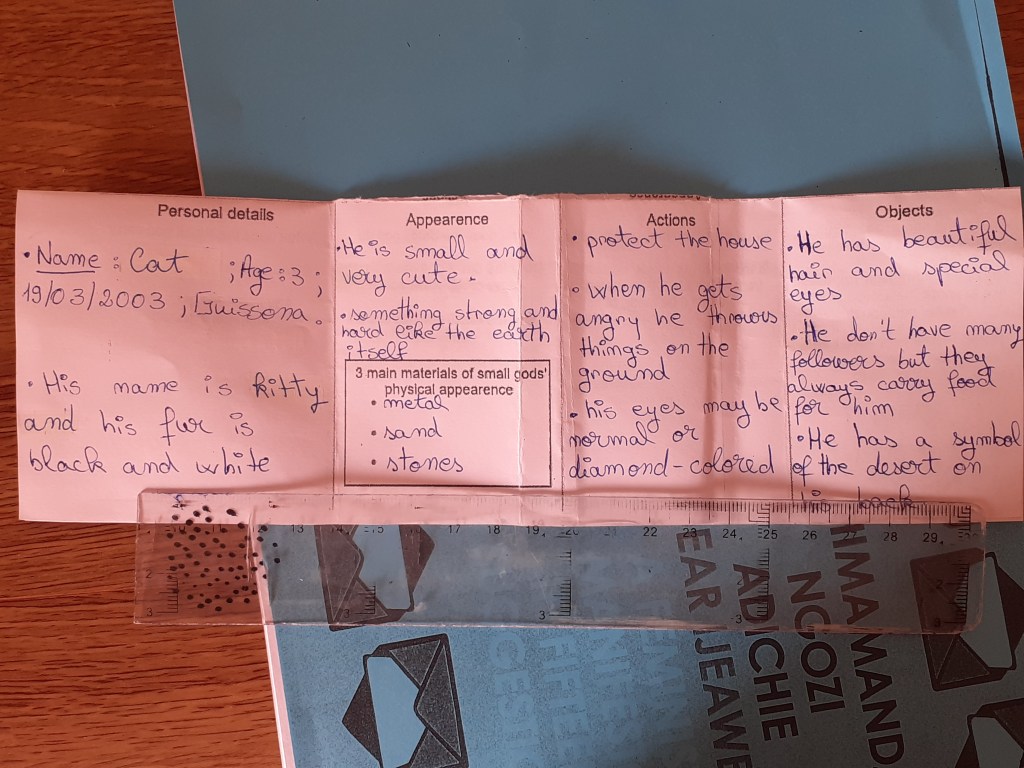 Personal details
• Name : Cat ; Age : 3 ;
19/03/2003 ; Guissona.
• His name is kitty
and his fur is
black and white
Appearence
• He is small and
very cute.
• something strong and
hard like the earth
itself
3 main materials of small gods'
physical appearence
• metal
• sand
• stones
Actions
• protect the house
• when he gets
angry he throws
things on the
ground
• his eyes may be
normal or
diamond-colored
Objects
• He has beautiful
hair and special
eyes
• He don't have many
followers but they
always carry food
for him
• He has a symbol
of the desert on
his back
13 14 15 16 17 18 19 20 21 22 23 24 25 26 27 28 29 30
2
3
3
3
3
2
3
HIMAMAND
NGOZI
ADICHIE
EAR IJEAWE